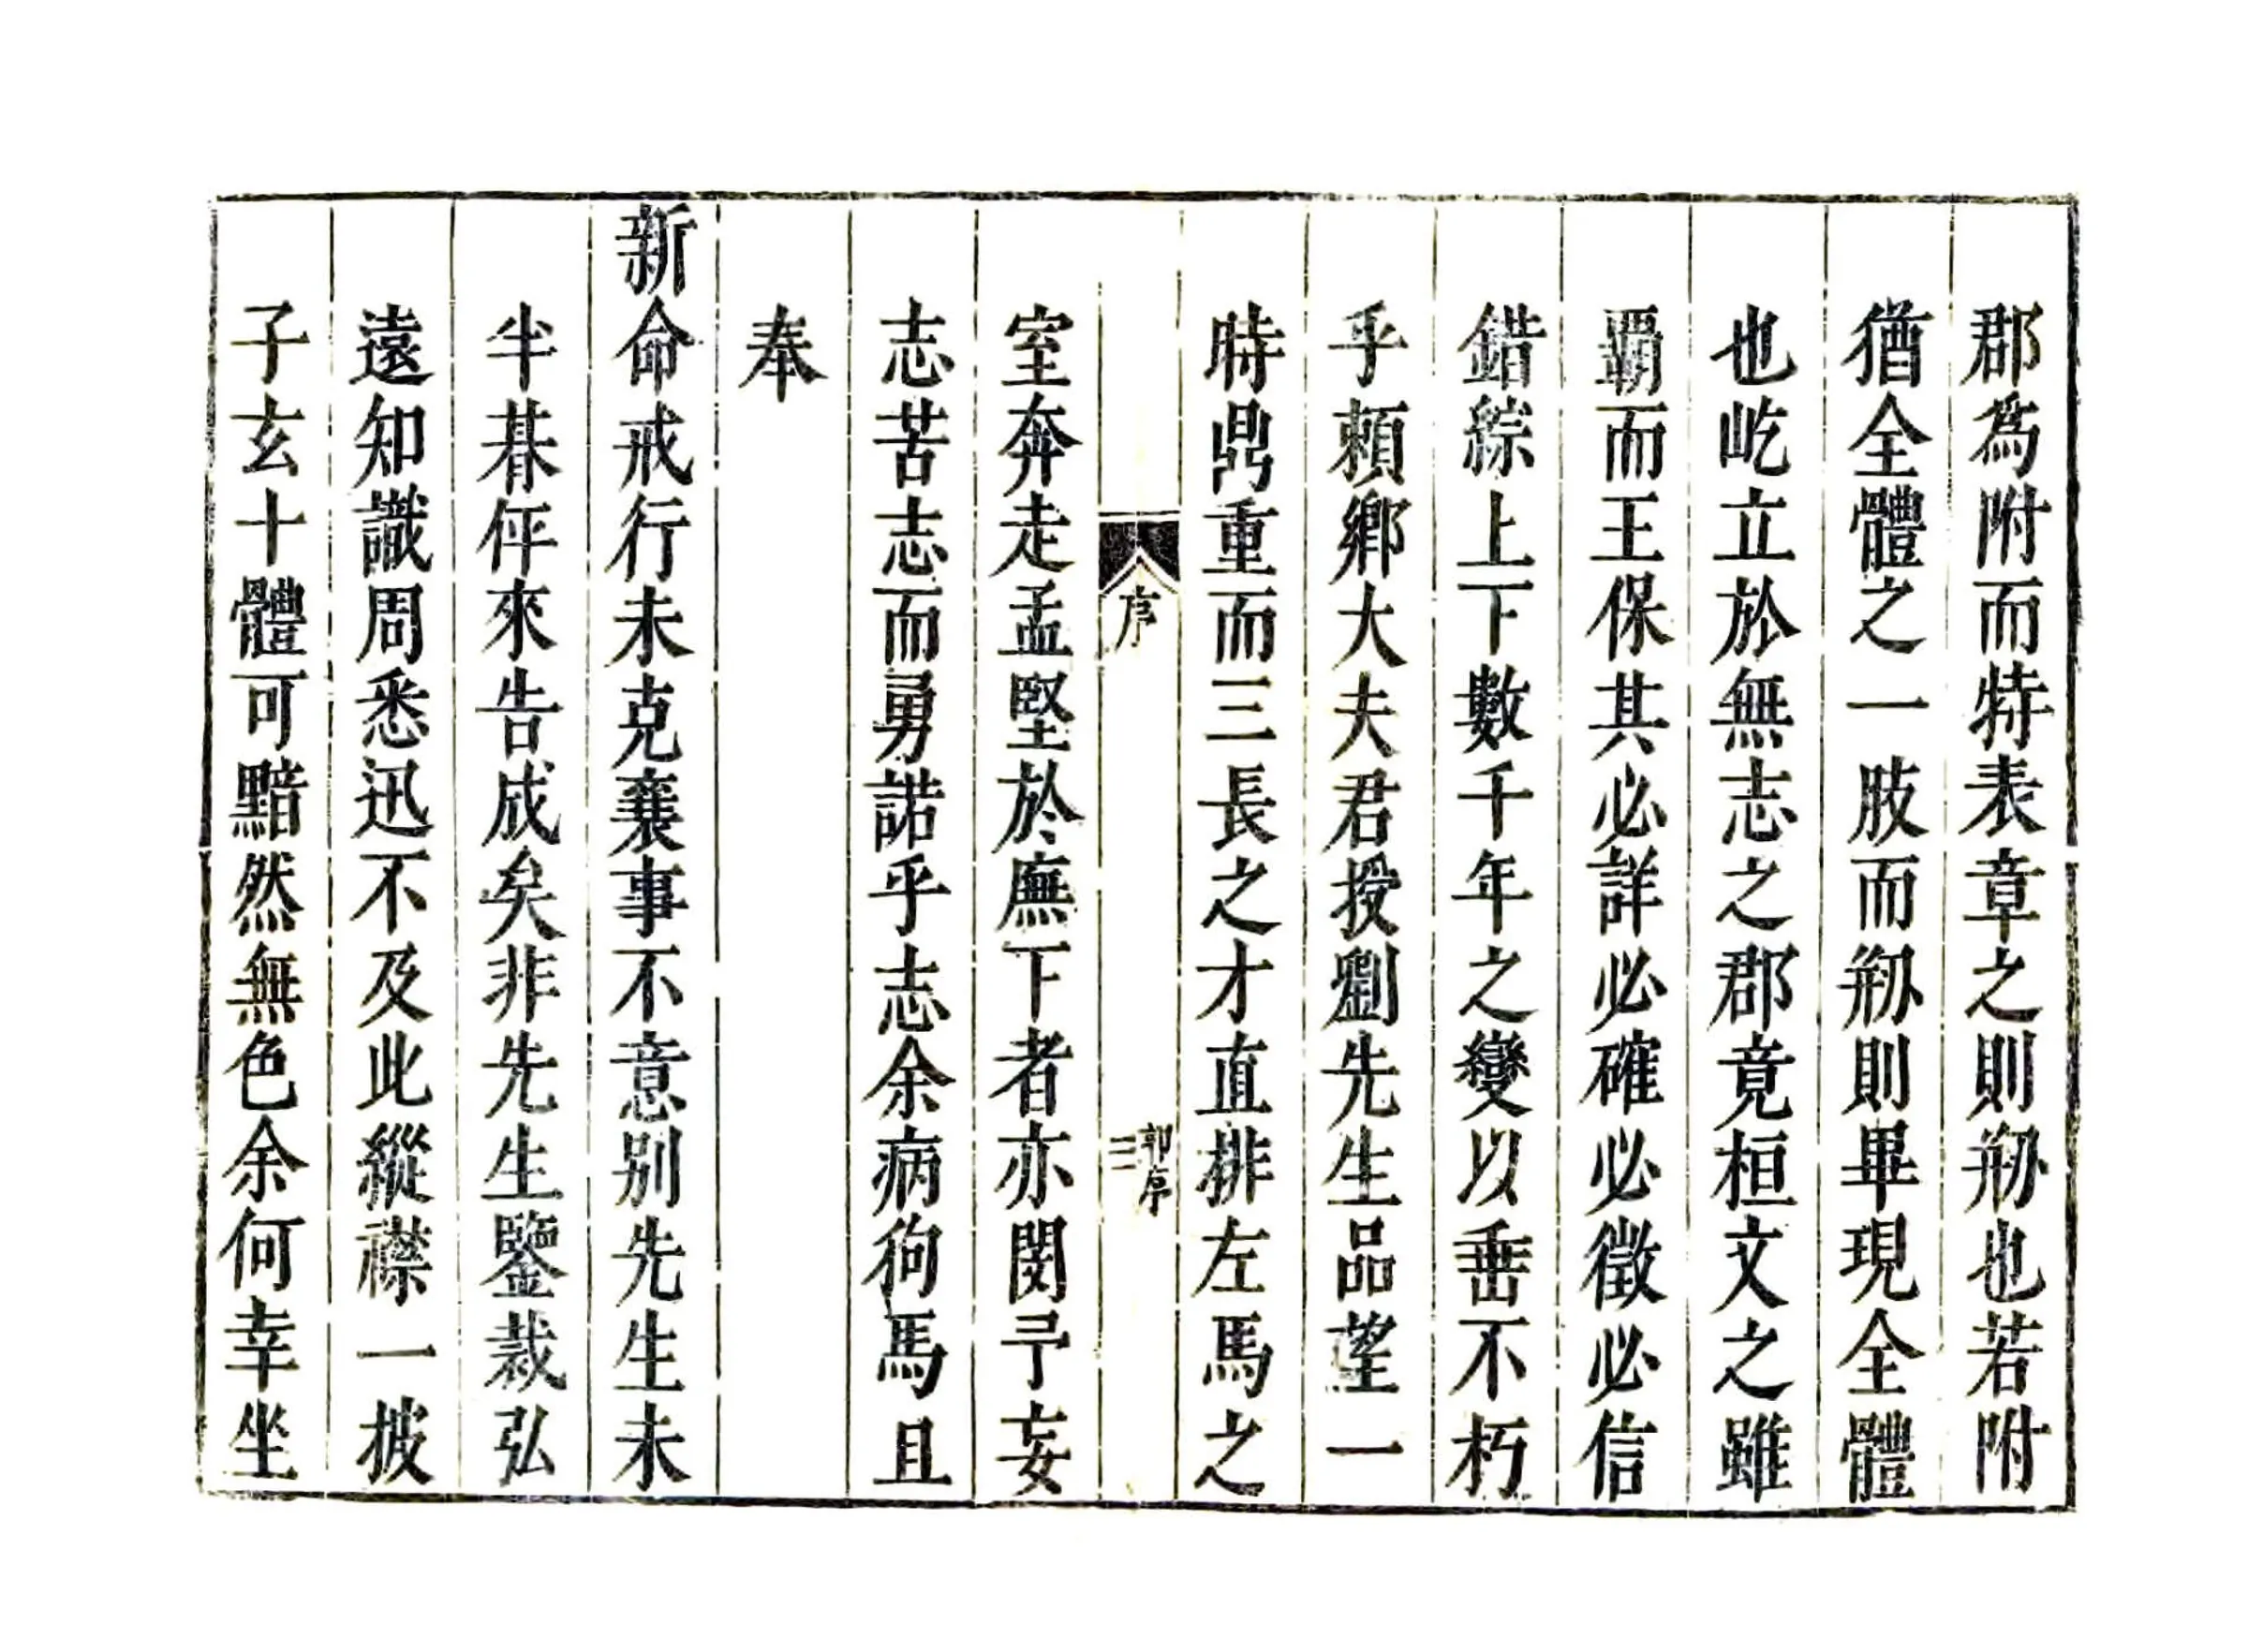 郡為附而特表章之則剙也若附
猶全體之一肢而剙則畢現全體
也屹立於無志之郡竟桓文之雖
覇而王保其必詳必確必徵必信
錯綜上下數千年之變以垂不朽
乎頼鄉大夫君授劉先生品望一
時鼎重而三長之才直排左馬之
序
郭序
三
室奔走孟堅於廡下者亦閔予妄
志苦志而勇諾乎志余病狥馬且
奉
新命戒行未克襄事不意别先生未
半朞伻來告成矣非先生鑒裁弘
遠知識周悉迅不及此縱襟一披
子玄十體可黯然無色余何幸坐